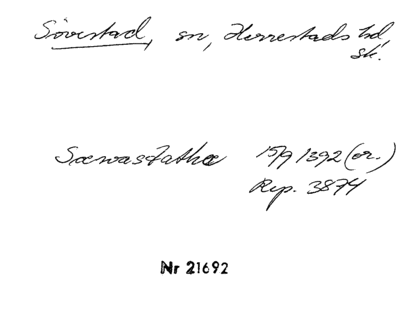 Sövestad, sn, Herrestads hd,
sk.
Sæwastathæ 15/9 1392 (or.)
Rep. 3874
Nr 21692